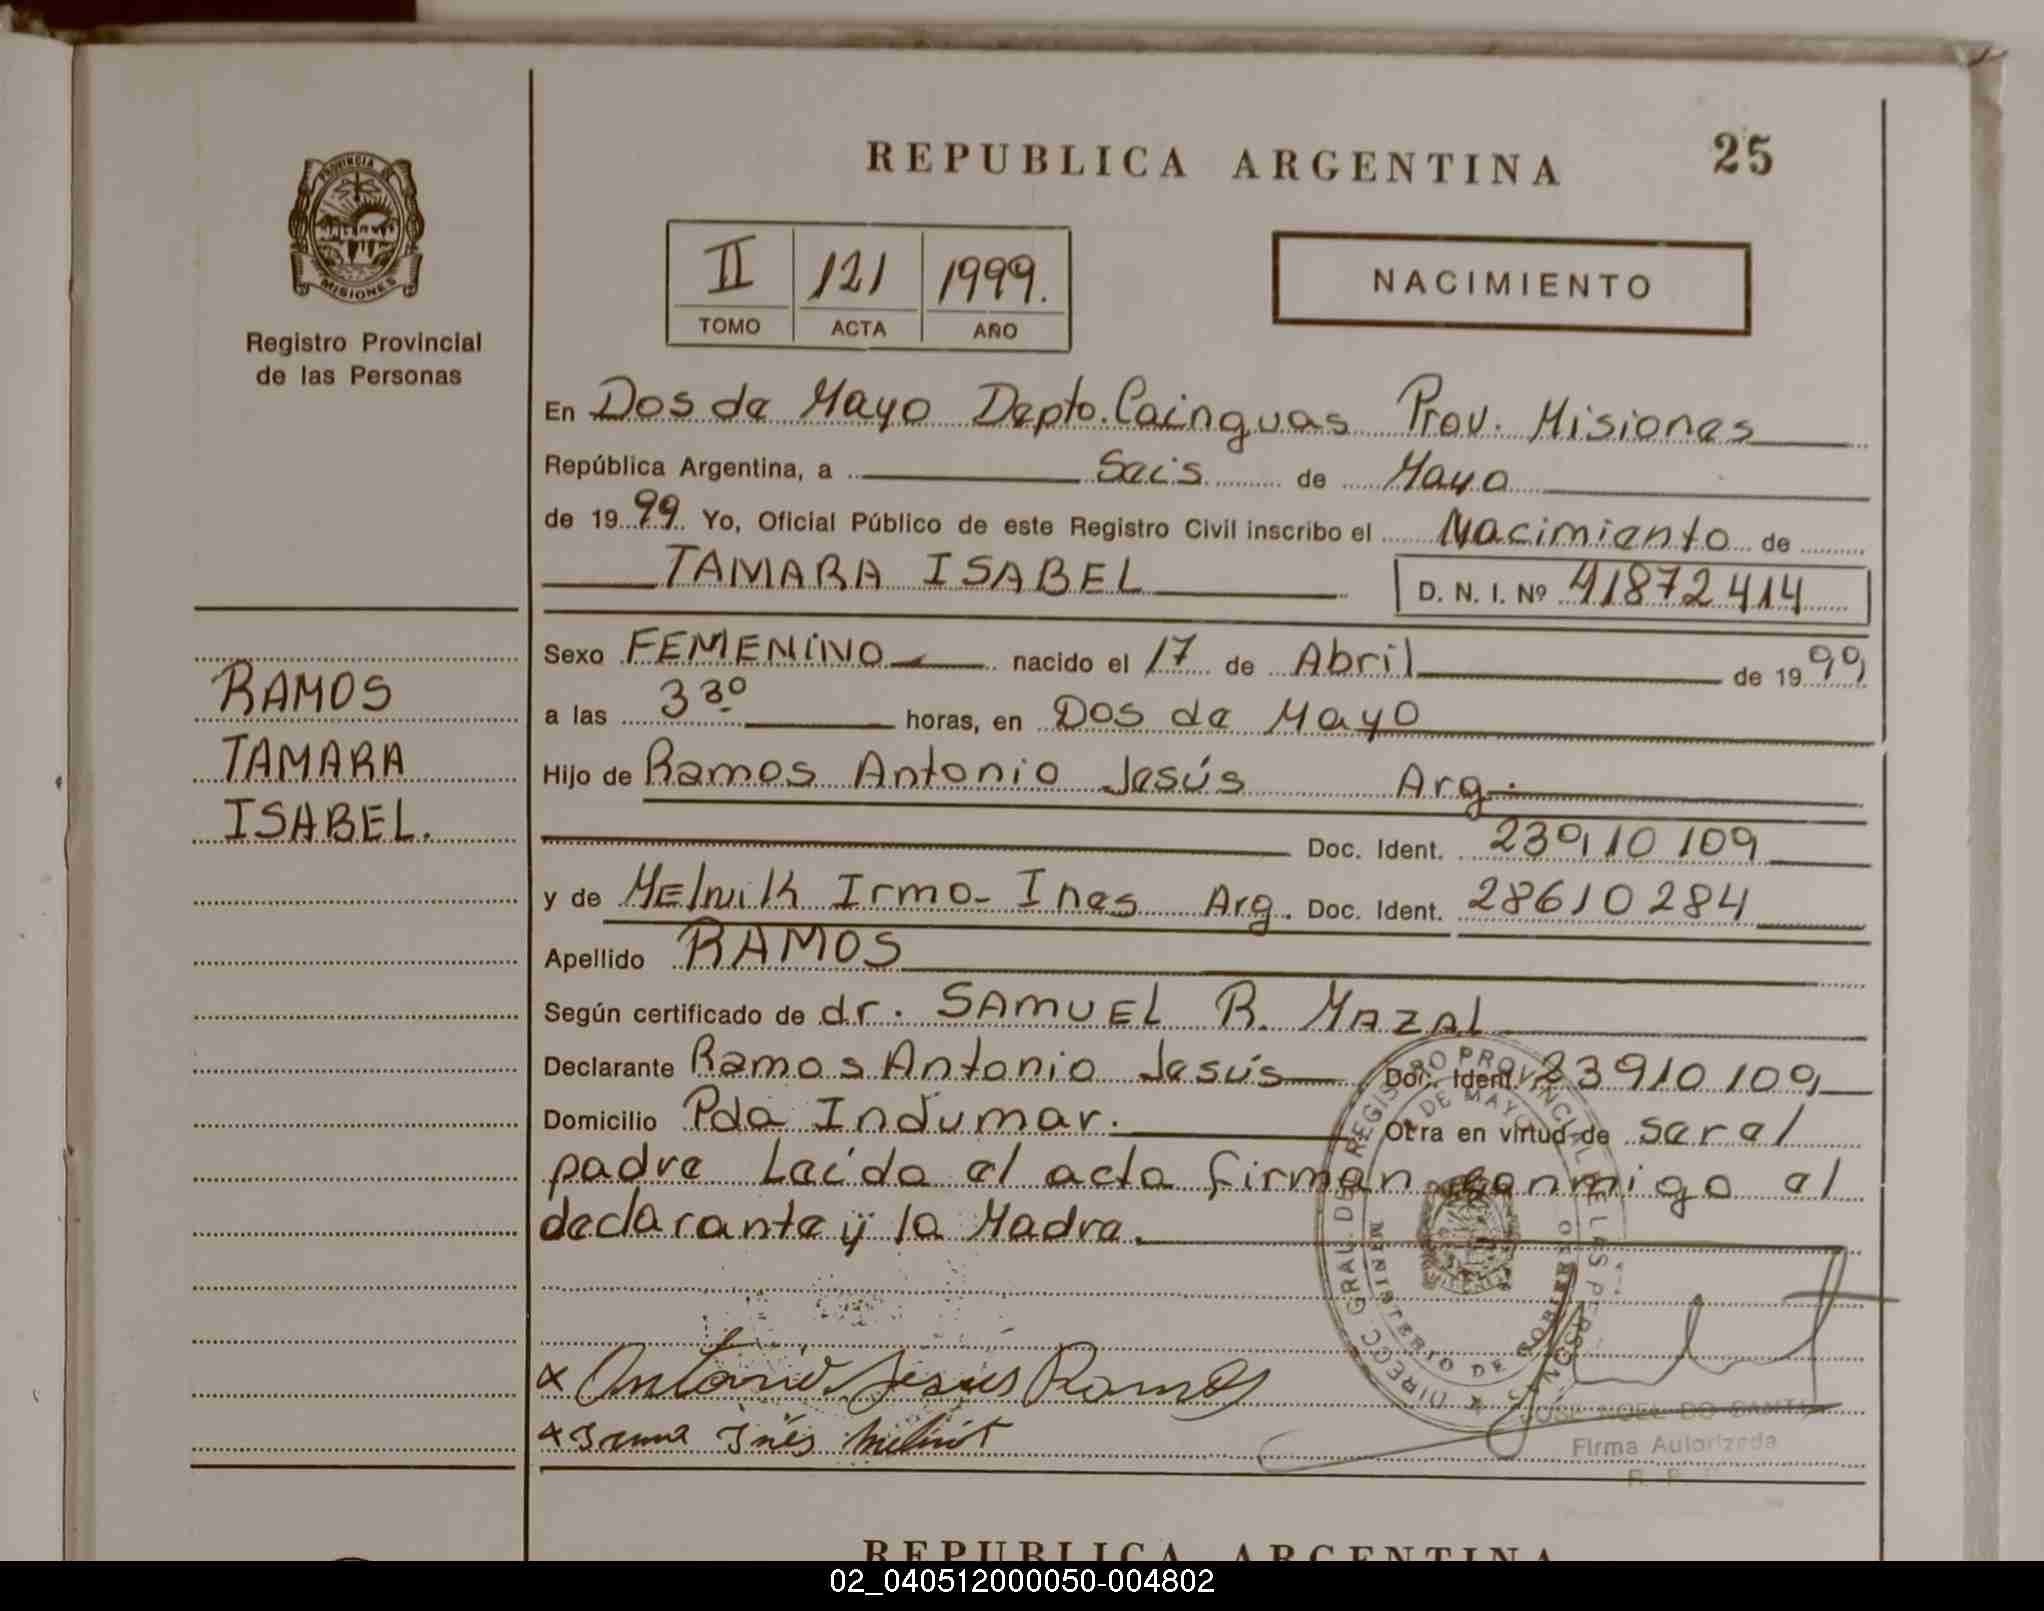 REPUBLICA ARGENTINA 25
PROVINCIA DE
MISIONES
Registro Provincial
de las Personas
II 121 1999.
TOMO ACTA AÑO
NACIMIENTO
En Dos de Mayo Depto. Cainguas Prov. Misiones
República Argentina, a Seis de Mayo
de 1999 Yo, Oficial Público de este Registro Civil inscribo el Nacimiento de
TAMARA ISABEL D. N. I. Nº 41872414
Sexo FEMENINO nacido el 17 de Abril de 1999
a las 3 30 horas, en Dos de Mayo
Hijo de Ramos Antonio Jesús Arg.
Doc. Ident. 23910109
y de Melnik Irma Ines Arg. Doc. Ident. 28610284
Apellido RAMOS
Según certificado de dr. SAMUEL R. MAZAL
Declarante Ramos Antonio Jesús Doc. Ident. 23910109
Domicilio Pda Indumar. Obra en virtud de ser el
padre Leída el acta firman conmigo el
declarante y la Madre.
RAMOS
TAMARA
ISABEL.
DIRECC GRAL DE REGISTRO PROVINCIAL DE LAS PERSONAS
DOS DE MAYO
MINISTERIO DE GOBIERNO
x Antonio Jesús Ramos
x Irma Inés Melnik
JOSE NOEL DO SANTO
Firma Autorizada
REPUBLICA ARGENTINA
02_040512000050-004802